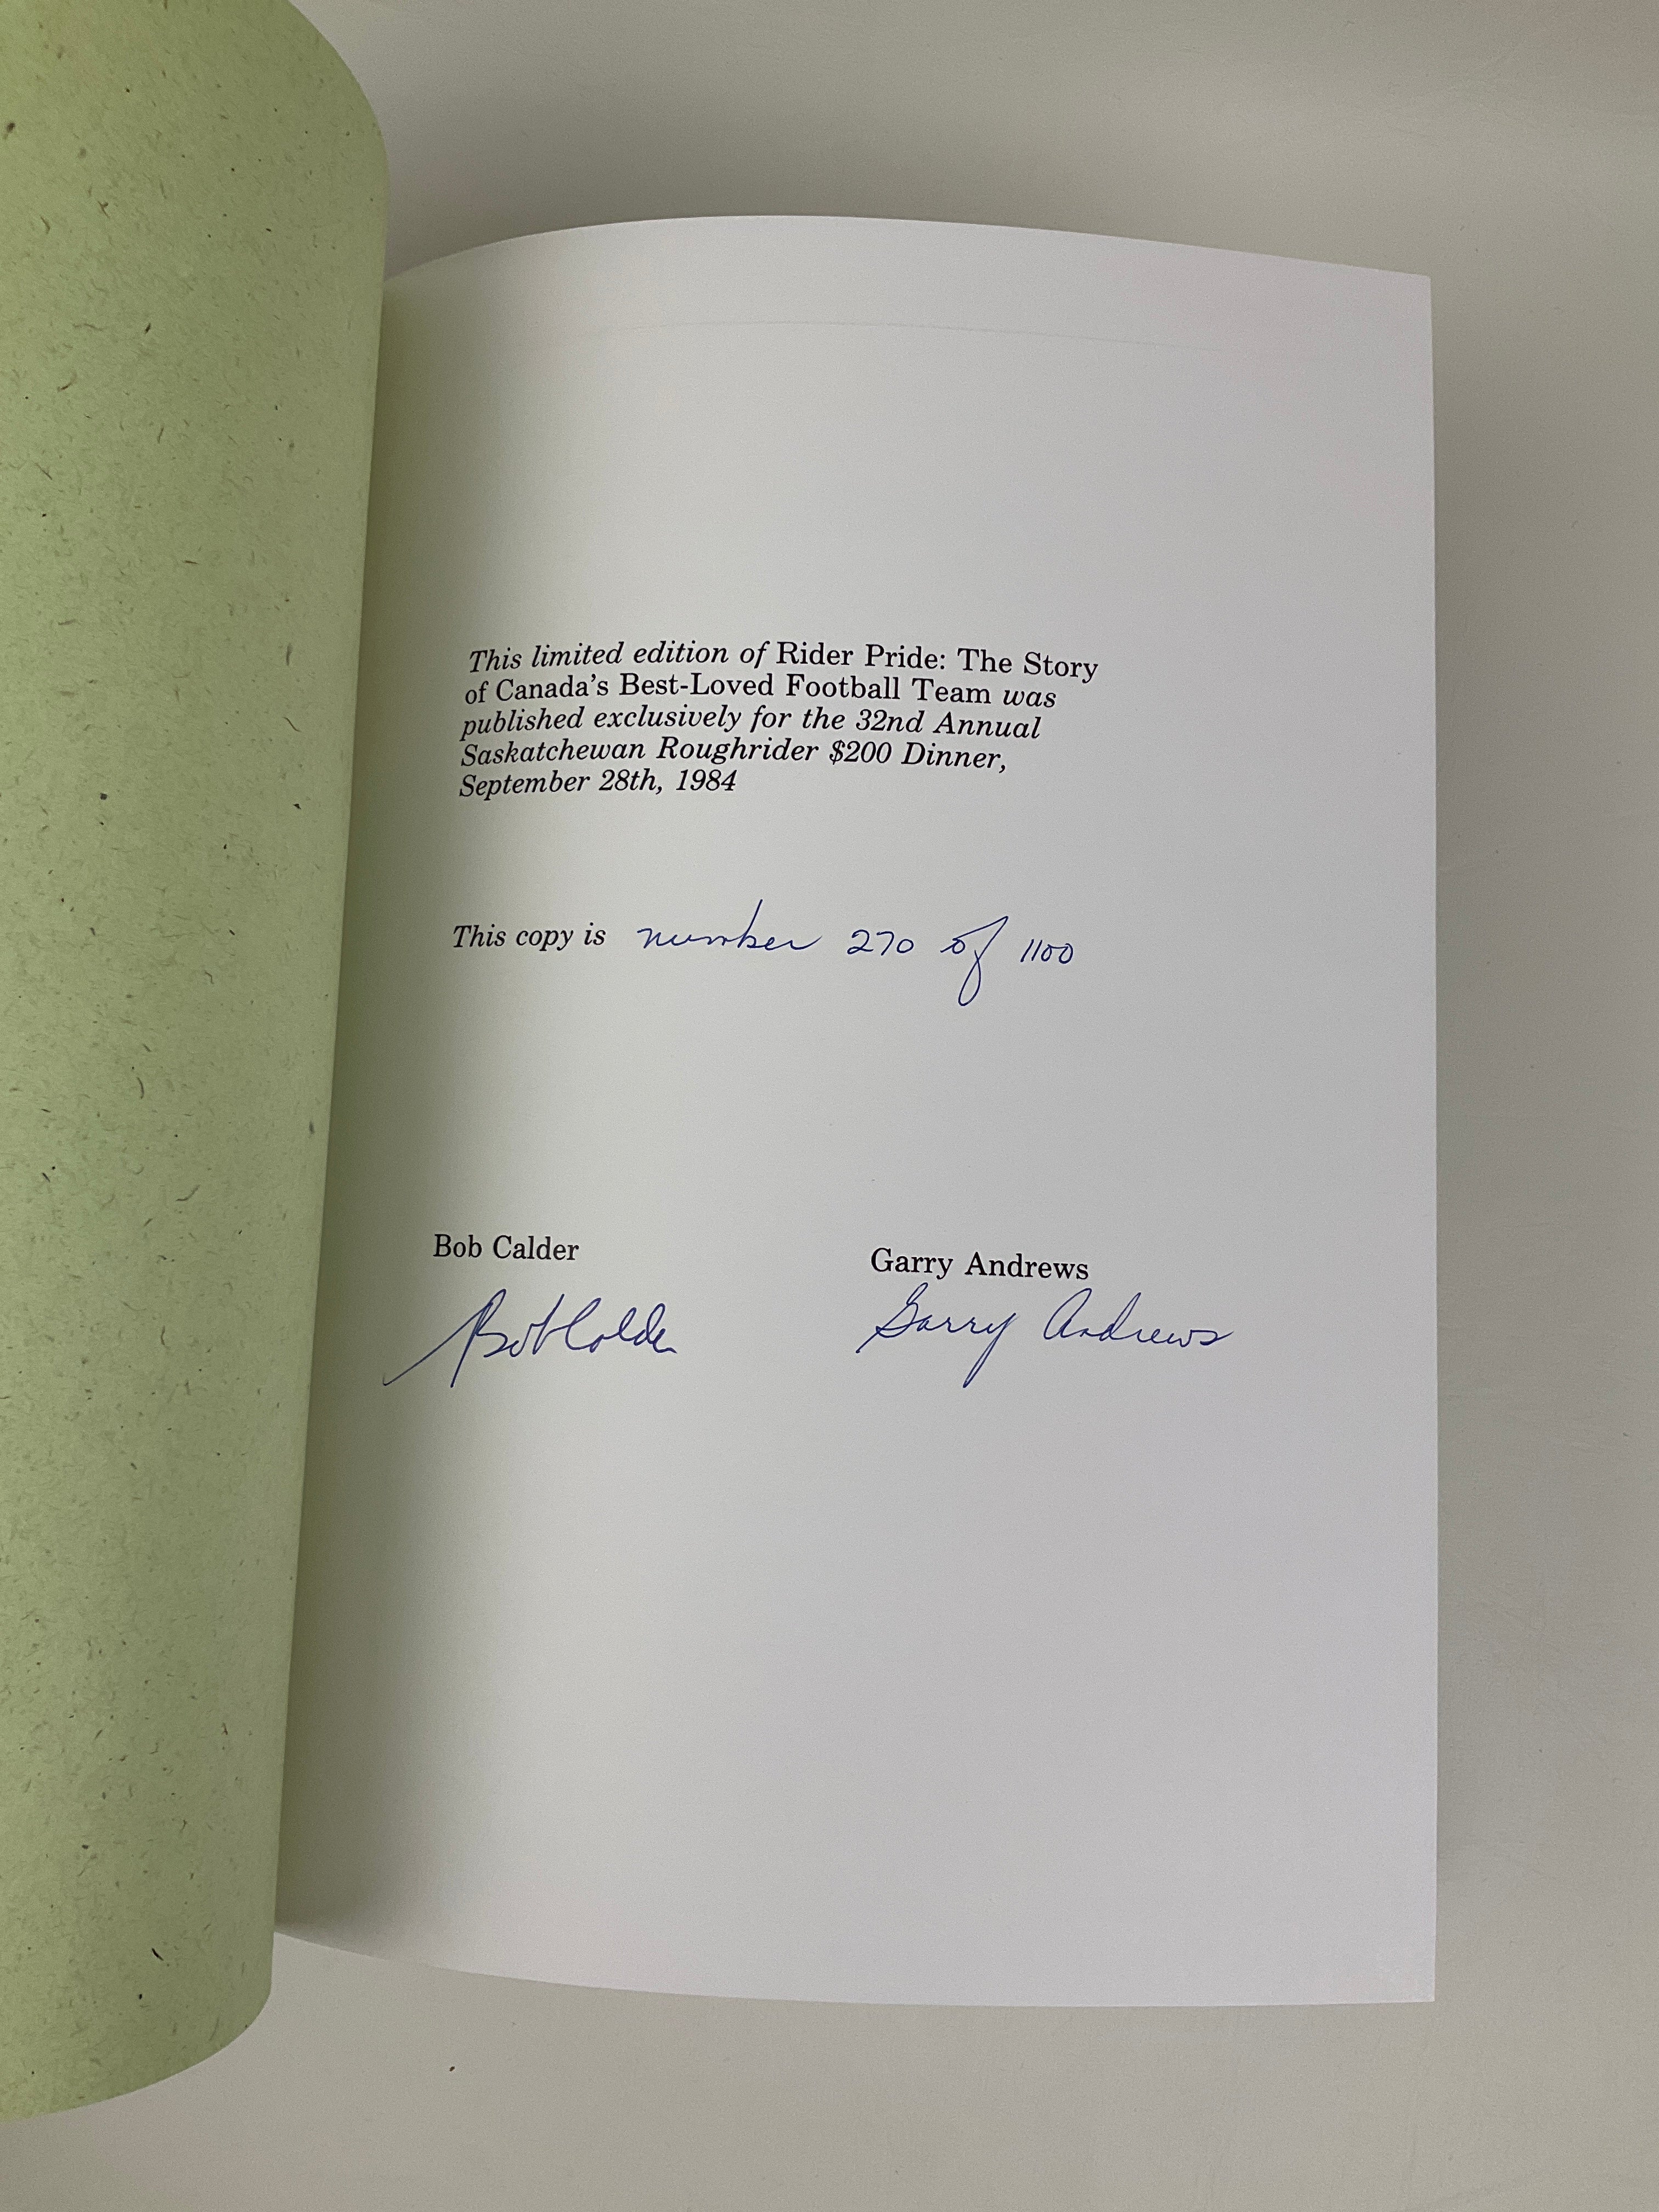 This limited edition of Rider Pride: The Story
of Canada's Best-Loved Football Team was
published exclusively for the 32nd Annual
Saskatchewan Roughrider $200 Dinner,
September 28th, 1984
This copy is number 270 of 1100
Bob Calder Garry Andrews
Bob Calder Garry Andrews